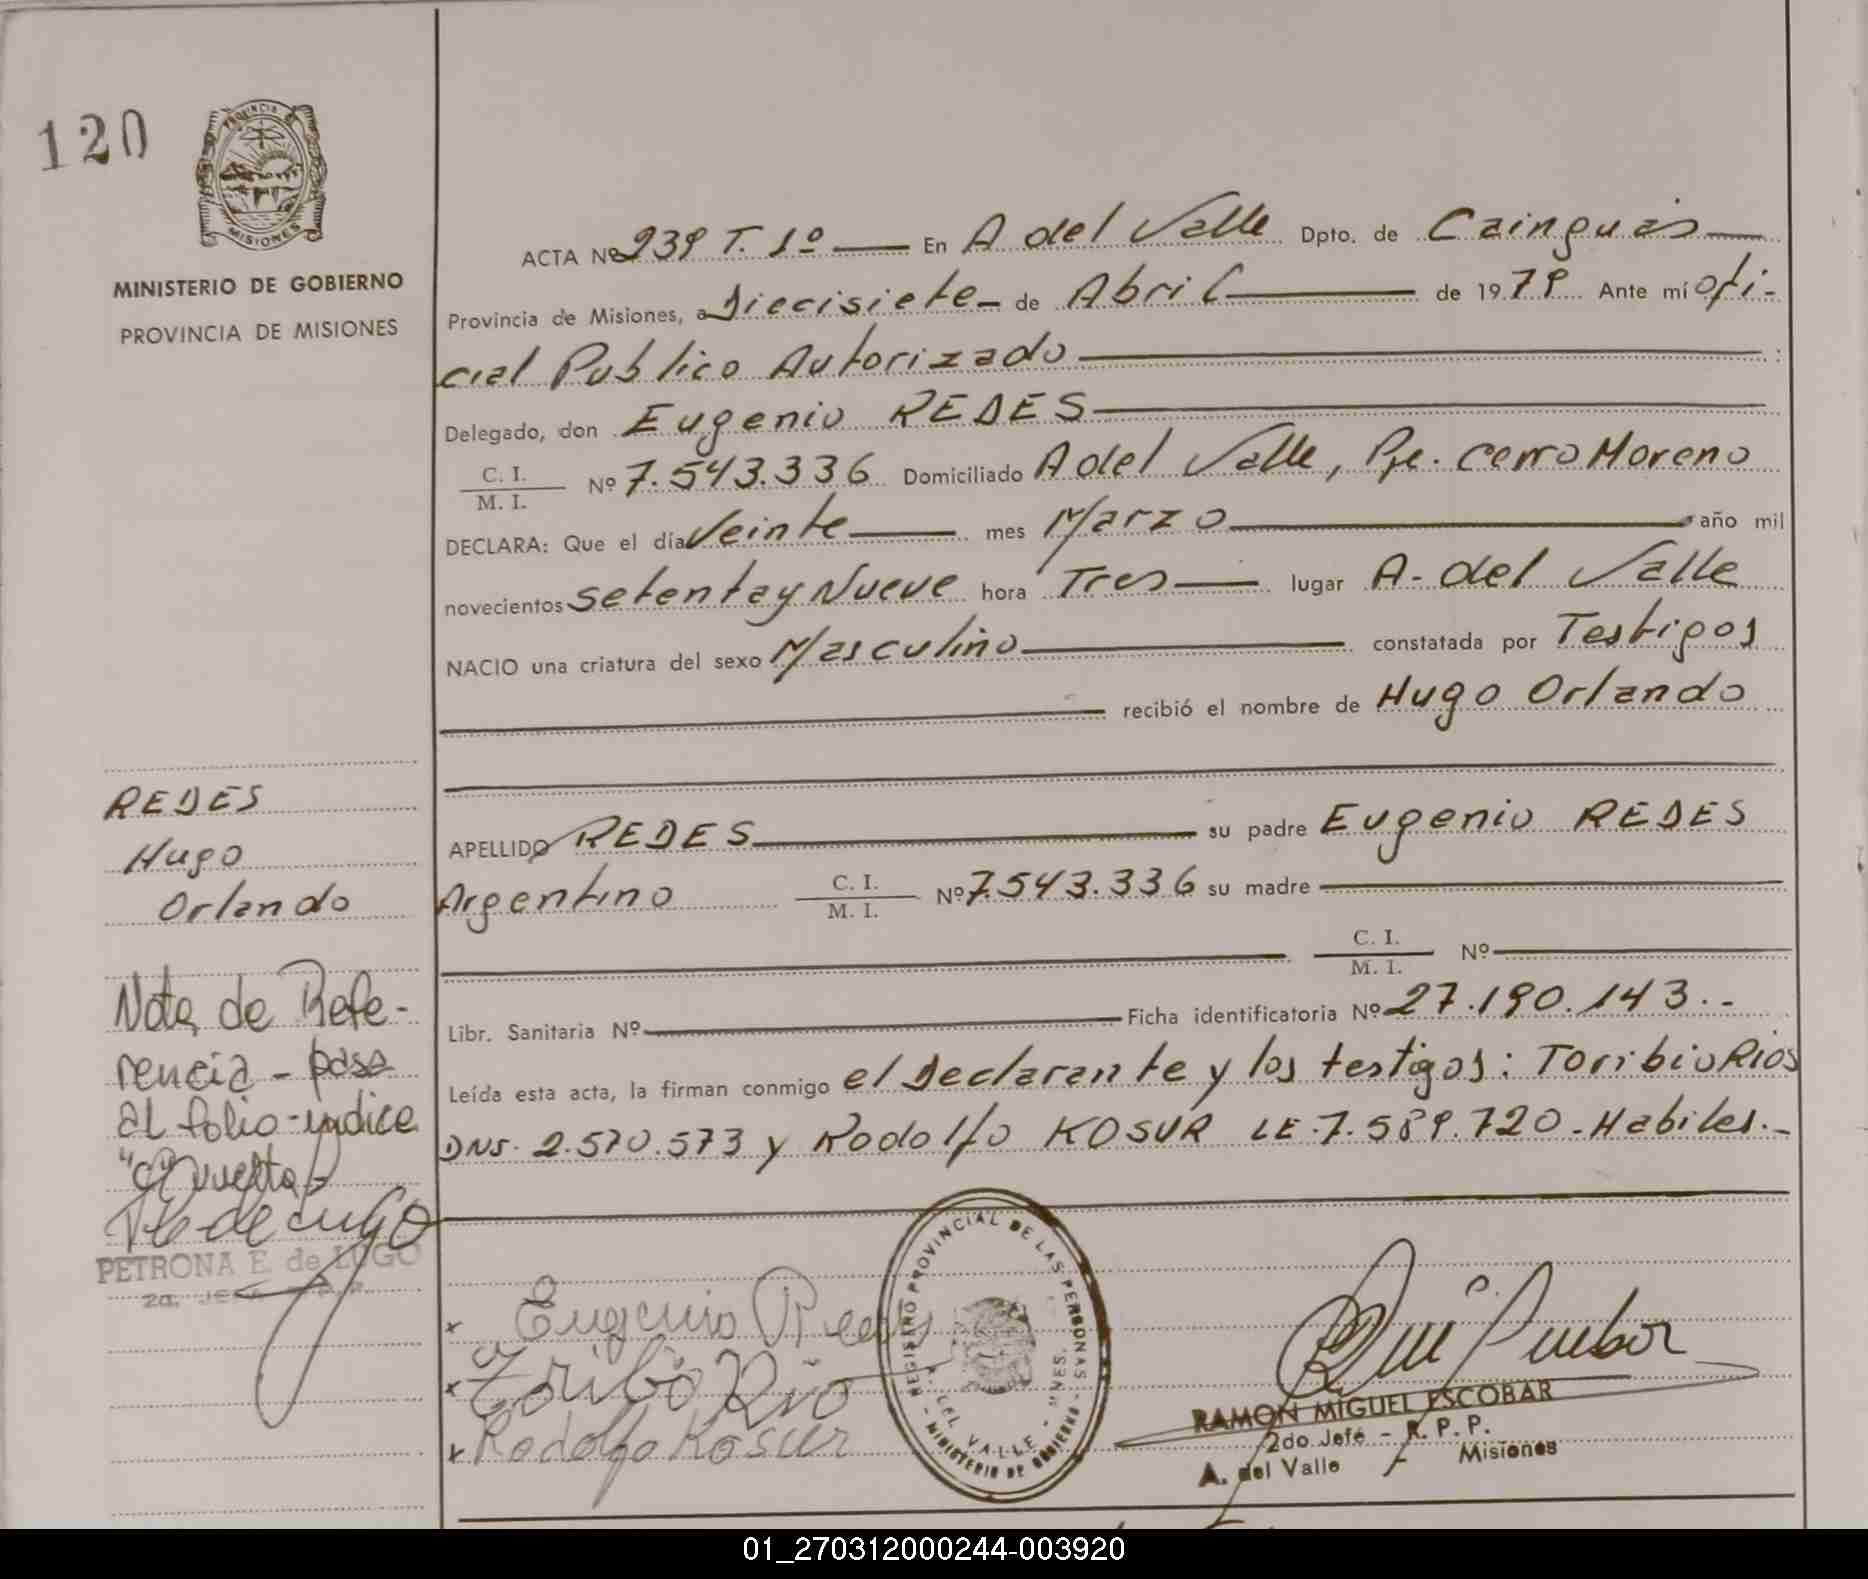 120
PROVINCIA DE
MISIONES
MINISTERIO DE GOBIERNO
PROVINCIA DE MISIONES
ACTA Nº 239 T. 1º En A del Valle Dpto. de Cainguás
Provincia de Misiones, a Diecisiete de Abril de 1979 Ante mí Ofi-
cial Publico Autorizado
Delegado, don Eugenio REDES
C. I.
M. I. Nº 7.543.336 Domiciliado A del Valle, Pje. Cerro Moreno
DECLARA: Que el día Veinte mes Marzo año mil
novecientos Setenta y Nueve hora Tres lugar A. del Valle
NACIO una criatura del sexo Masculino constatada por Testigos
recibió el nombre de Hugo Orlando
APELLIDO REDES su padre Eugenio REDES
Argentino C. I.
M. I. Nº 7.543.336 su madre
C. I.
M. I. Nº
Libr. Sanitaria Nº Ficha identificatoria Nº 27.190.143.-
Leída esta acta, la firman conmigo el Declarante y los testigos: Toribio Rios
DNS. 2.570.573 y Rodolfo KOSUR LE.7.589.720-Habiles.-
REDES
Hugo
Orlando
Nota de Refe-
rencia - pasa
al folio-indice
"C" vuelta
PETRONA E. de LUGO
2a. JEFE
x Eugenio Redes
x Toribio Rio
x Rodolfo Kosur
REGISTRO PROVINCIAL DE LAS PERSONAS
A. DEL VALLE - MNES.
MINISTERIO DE GOBIERNO
RAMON MIGUEL ESCOBAR
2do Jefe - R. P. P.
A. del Valle Misiones
01_270312000244-003920